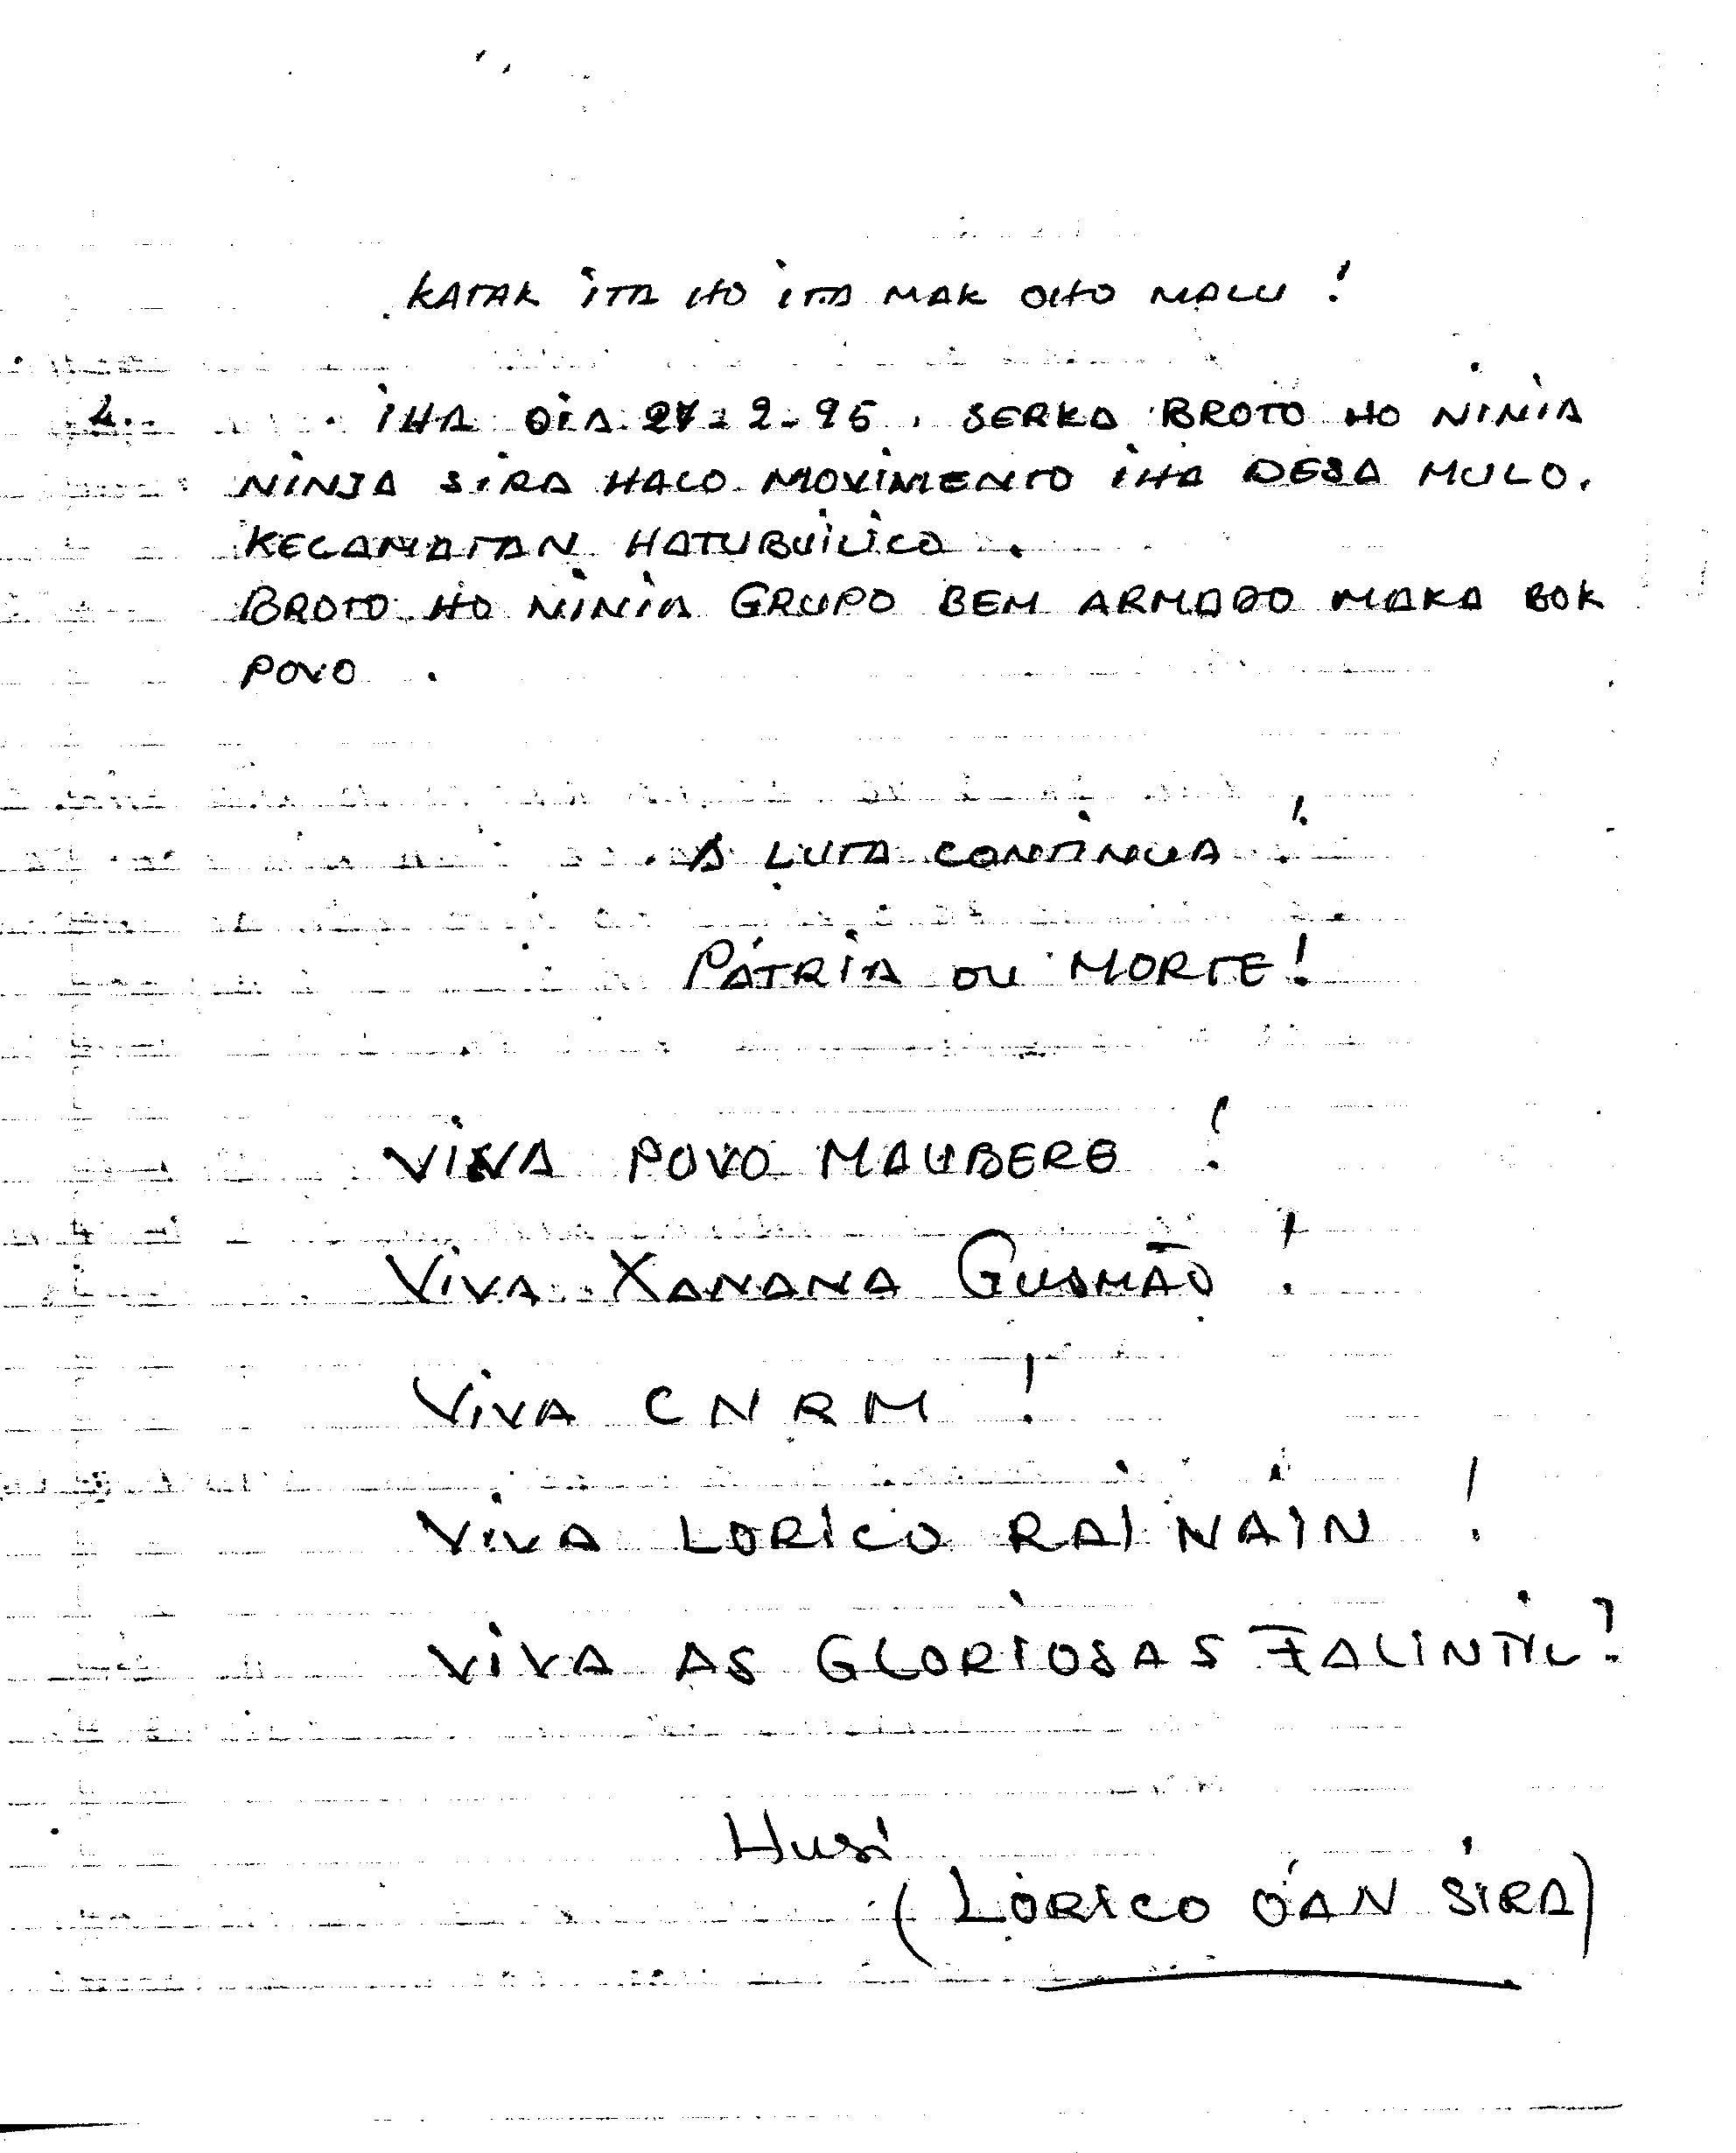 KATAK ITA HO ITA MAK OHO MALU !
2. IHA DIA 27-2-95, SERKA BROTO HO NINIA
NINJA SIRA HALO MOVIMENTO IHA DESA MULO.
KECAMATAN HATUBUILICO.
BROTO HO NINIA GRUPO BEM ARMADO MAKA BOK
POVO.
A LUTA CONTINUA !
PÁTRIA OU MORTE!
VIVA POVO MAUBERE !
VIVA XANANA GUSMÃO !
VIVA CNRM !
VIVA LORICO RAI NAIN !
VIVA AS GLORIOSAS FALINTIL!
Husi
(LORICO OÁN SIRA)